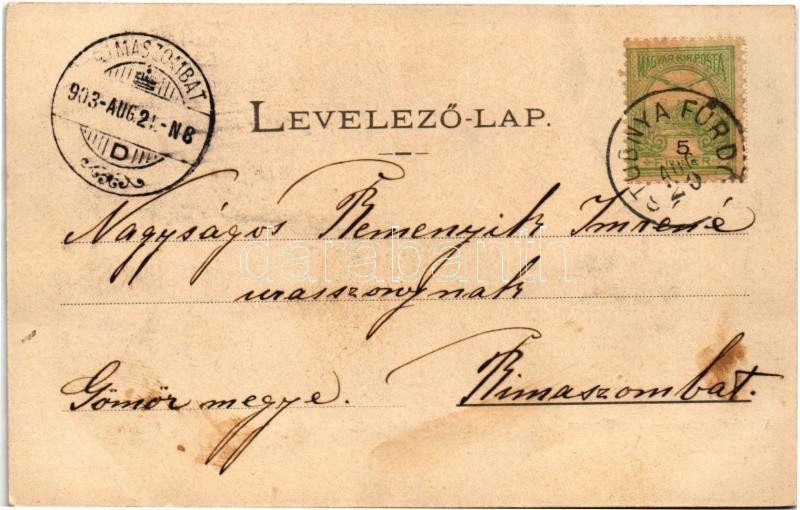 RIMASZOMBAT
903-AUG.2
N8
D
LEVELEZŐ-LAP.
MAGYAR KIR. POSTA
5
STUBNYA FÜRDŐ
AUG
20
Nagyságos Remenyik Imréné
urasszonynak
Gömör megye.
Rimaszombat.
darabanth